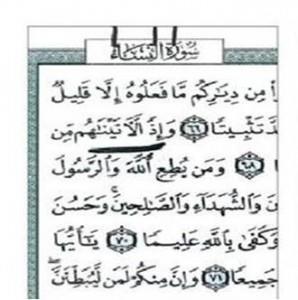 سُورَةُ النِّسَاءِ
أ مِن دِيَارِكُم مَّا فَعَلُوهُ إِلَّا قَلِيلٌ
دَّ تَثْبِيتًا ﴿٦٦﴾ وَإِذًا لَّآتَيْنَاهُم مِّن
﴿٦٨﴾ وَمَن يُطِعِ اللَّهَ وَالرَّسُولَ
نَ وَالشُّهَدَاءِ وَالصَّالِحِينَ ۚ وَحَسُنَ
وَكَفَىٰ بِاللَّهِ عَلِيمًا ﴿٧٠﴾ يَا أَيُّهَا
جَمِيعًا ﴿٧١﴾ وَإِنَّ مِنكُمْ لَمَن لَّيُبَطِّئَنَّ ۖ